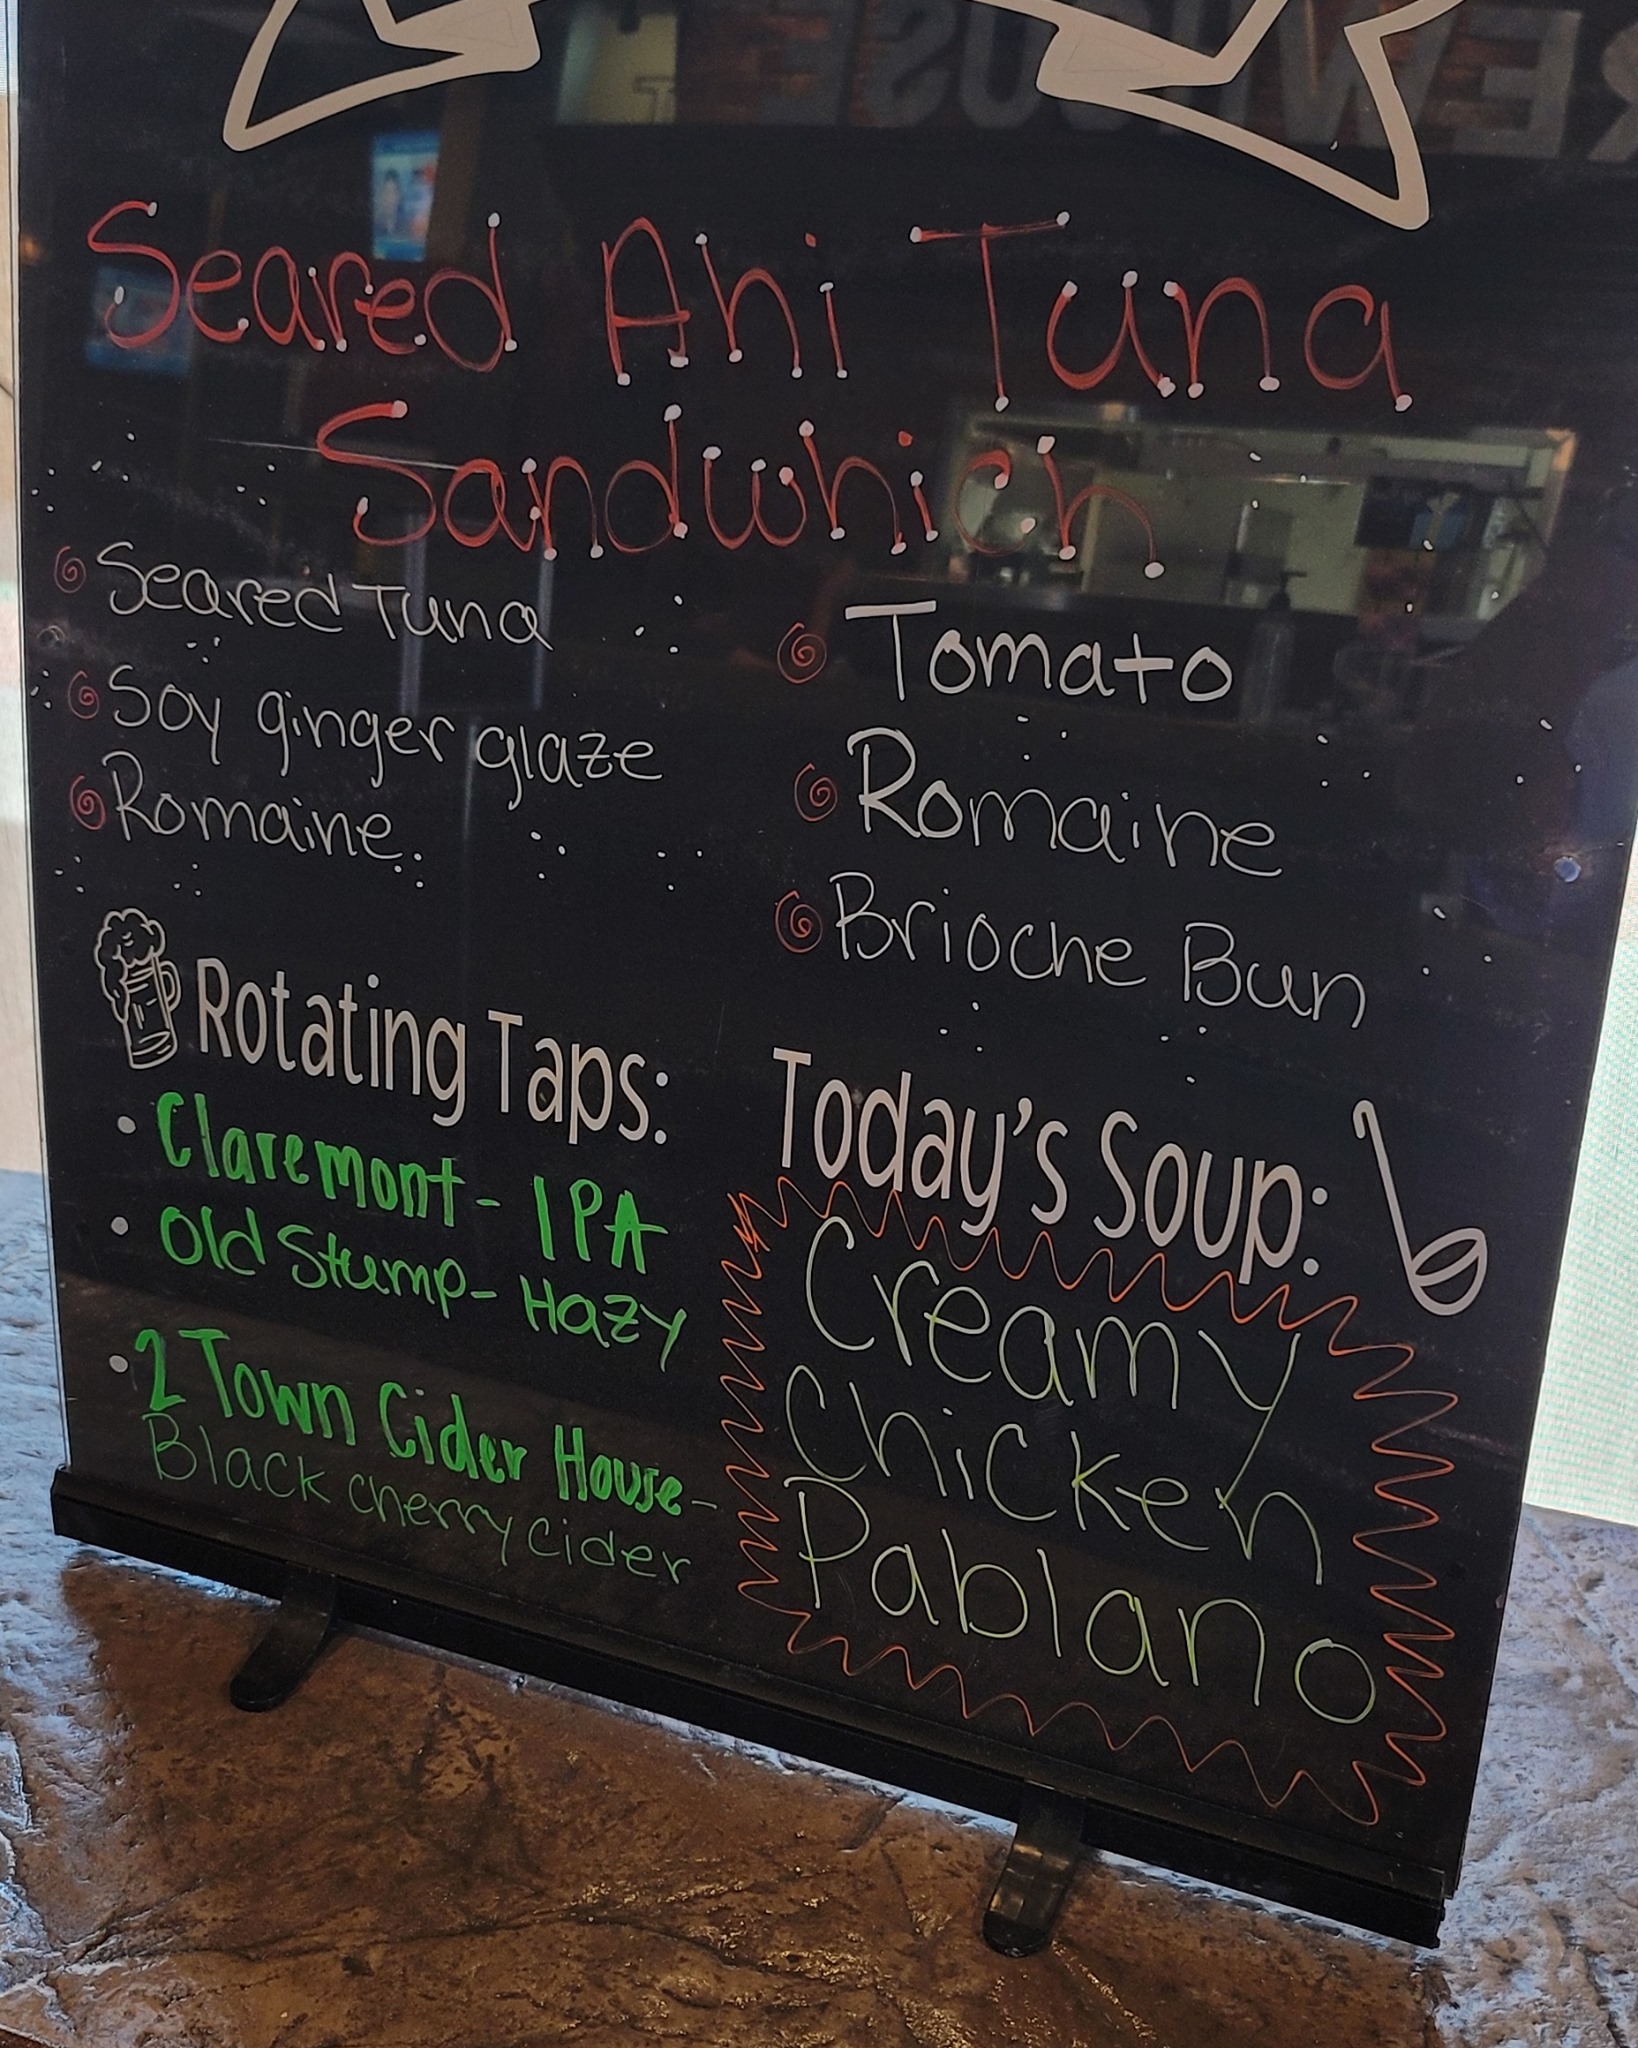 Seared Ahi Tuna
Sandwhich
Seared Tuna
Soy ginger glaze
Romaine
Tomato
Romaine
Brioche Bun
Rotating Taps:
Claremont - IPA
Old Stump - Hazy
2 Town Cider House -
Black cherry cider
Today's Soup:
Creamy
Chicken
Pablano